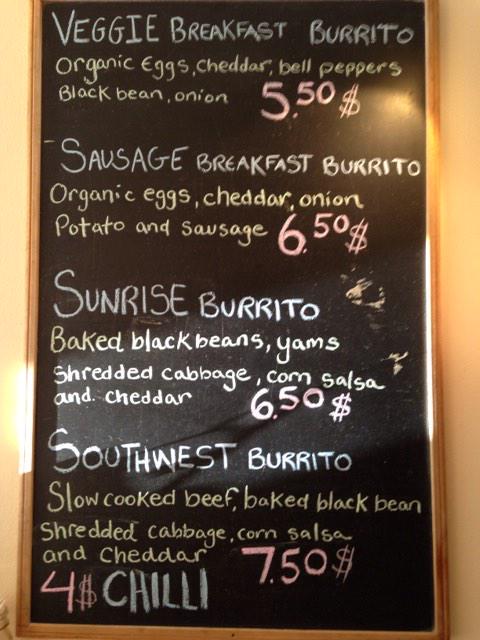 VEGGIE BREAKFAST BURRITO
Organic Eggs, cheddar, bell peppers
Black bean, onion 5.50$
SAUSAGE BREAKFAST BURRITO
Organic eggs, cheddar, onion
Potato and sausage 6.50$
SUNRISE BURRITO
Baked blackbeans, yams
Shredded cabbage, corn salsa
and cheddar 6.50$
SOUTHWEST BURRITO
Slow cooked beef, baked black bean
Shredded cabbage, corn salsa
and cheddar 7.50$
4$ CHILLI